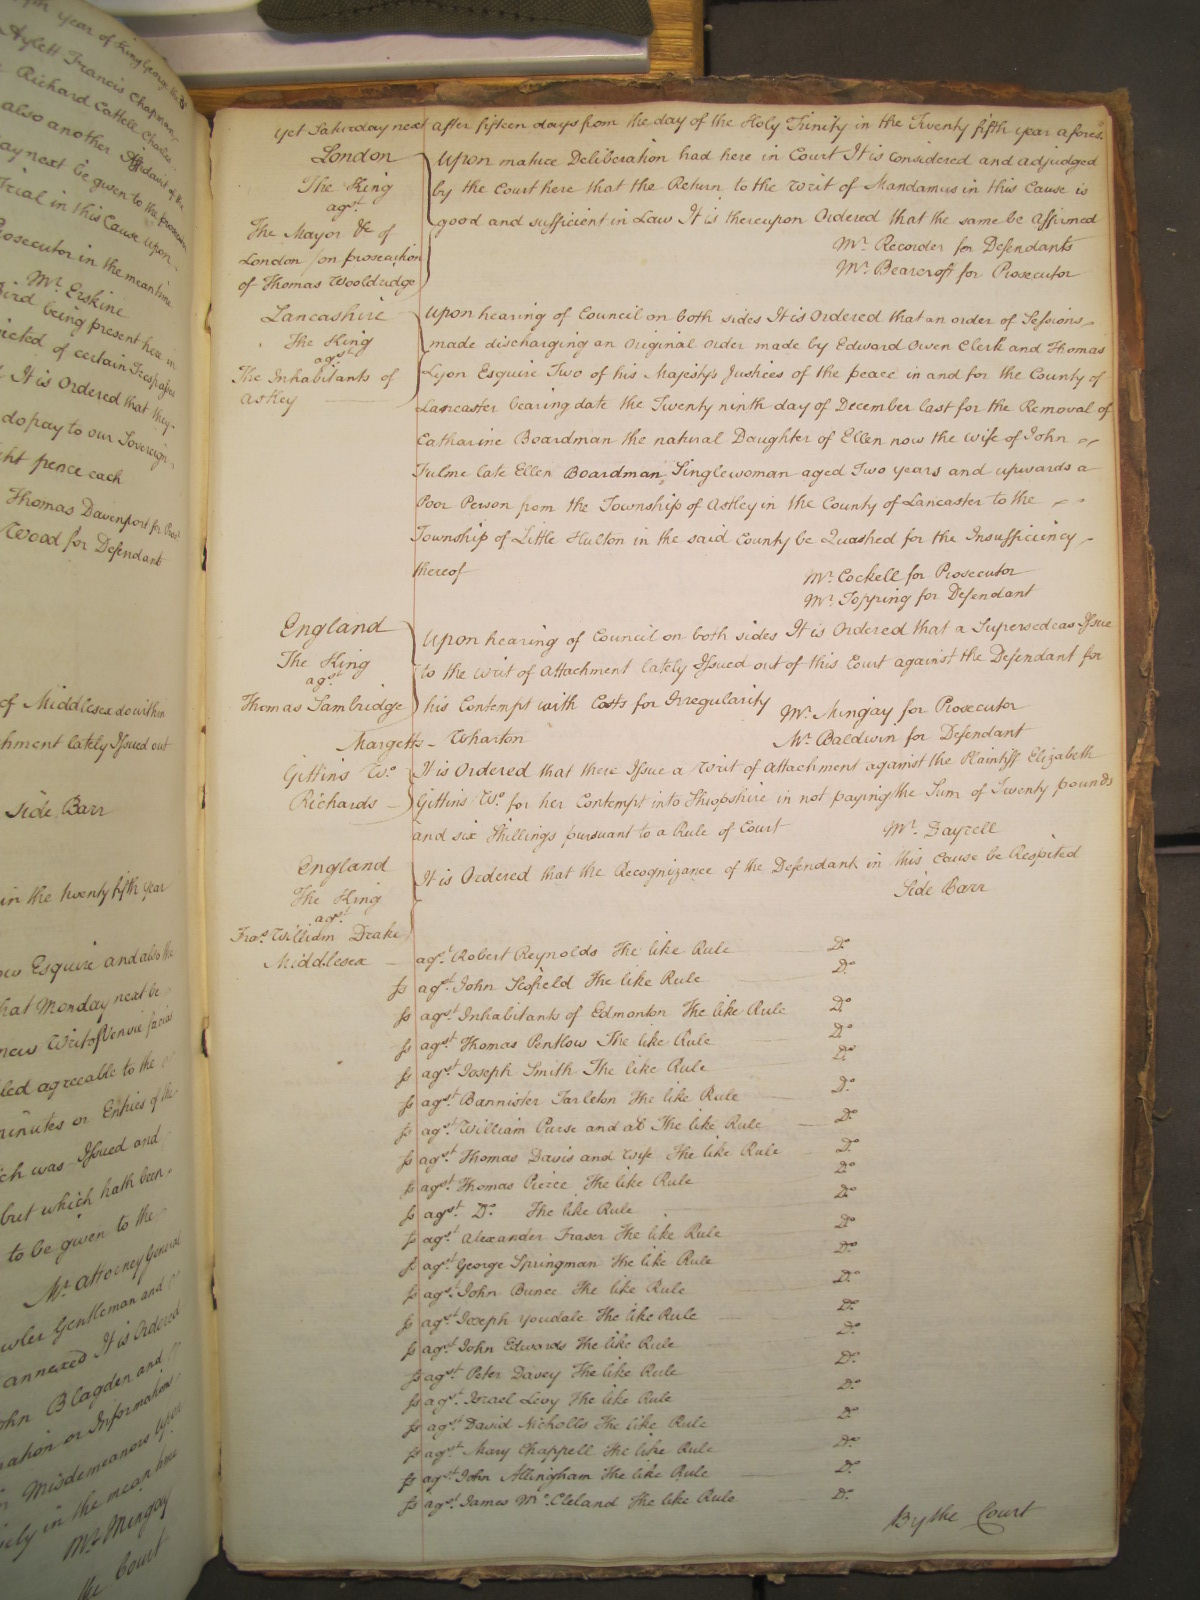 yet Saturday next after fifteen days from the day of the Holy Trinity in the Twenty fifth year afores.d
London
The King
ag.st
The Mayor &c of
London on prosecution
of Thomas Wooldridge
Upon mature Deliberation had here in Court It is Considered and adjudged
by the Court here that the Return to the Writ of Mandamus in this Cause is
good and sufficient in Law It is thereupon Ordered that the same be Affirmed
Mr. Recorder for Defendants
Mr. Bearcroft for Prosecutor
Lancashire
The King
ag.st
The Inhabitants of
Astley
Upon hearing of Council on both sides It is Ordered that an order of Sessions
made discharging an Original Order made by Edward Owen Clerk and Thomas
Lyon Esquire Two of his Majesty's Justices of the peace in and for the County of
Lancaster bearing date the Twenty ninth day of December last for the Removal of
Catharine Boardman the natural Daughter of Ellen now the Wife of John
Hulme late Ellen Boardman Singlewoman aged Two years and upwards a
Poor Person from the Township of Astley in the County of Lancaster to the
Township of Little Hulton in the said County be Quashed for the Insufficiency
thereof
Mr. Cockell for Prosecutor
Mr. Topping for Defendant
England
The King
ag.st
Thomas Sambridge
Upon hearing of Council on both sides It is Ordered that a Supersedeas Issue
to the Writ of Attachment lately Issued out of this Court against the Defendant for
his Contempt with Costs for Irregularity
Mr. Mingay for Prosecutor
Margetts - Wharton
Mr. Baldwin for Defendant
Gittins W.o
Richards
It is Ordered that there Issue a Writ of Attachment against the Plaintiff Elizabeth
Gittins W.o for her Contempt into Shropshire in not paying the Sum of Twenty pounds
and six Shillings pursuant to a Rule of Court
Mr. Dayrell
England
The King
ag.st
Fra.s William Drake
It is Ordered that the Recognizance of the Defendant in this Cause be Respited
Side Barr
Middlesex - ag.st Robert Reynolds The like Rule D.o
ss ag.st John Scofield The like Rule D.o
ss ag.st Inhabitants of Edmonton The like Rule D.o
ss ag.st Thomas Pentlow The like Rule D.o
ss ag.st Joseph Smith The like Rule D.o
ss ag.st Bannister Tarleton The like Rule D.o
ss ag.st William Purse and al The like Rule D.o
ss ag.st Thomas Davis and Wife The like Rule D.o
ss ag.st Thomas Pierce The like Rule D.o
ss ag.st D.o The like Rule D.o
ss ag.st Alexander Fraser The like Rule D.o
ss ag.st George Springman The like Rule D.o
ss ag.st John Bunce The like Rule D.o
ss ag.st Joseph Youdale The like Rule D.o
ss ag.st John Edwards The like Rule D.o
ss ag.st Peter Davey The like Rule D.o
ss ag.st Israel Levy The like Rule D.o
ss ag.st David Nicholls The like Rule D.o
ss ag.st Mary Chappell The like Rule D.o
ss ag.st John Allingham The like Rule D.o
ss ag.st James Mc.Cleland The like Rule D.o
By the Court
year of King George the
Aylett Francis Chapman
Richard Cattell Charles
also another Affidavit of the
next be given to the prosecutor
Trial in this Cause upon
prosecutor in the mean time
Mr. Erskine
being present here in
of certain Trespasses
It is Ordered that they
do pay to our Sovereign
pence each
Thomas Davenport for
Wood for Defendant
of Middlesex do within
lately Issued out
Side Barr
in the twenty fifth year
Esquire and also the
that Monday next be
new Writ of Venire facias
agreeable to the
minutes or Entries of the
which was Issued and
but which hath been
to be given to the
Mr. Attorney General
Gentleman and
annexed It is Ordered
John Blagden and
or Informations
Misdemeanors
in the mean time
Mr. Mingay
the Court